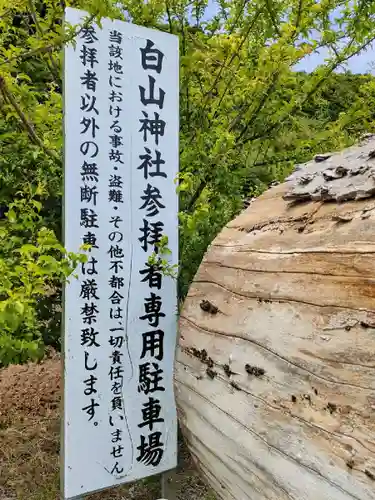 白山神社参拝者専用駐車場
当該地における事故・盗難・その他不都合は一切責任を負いません
参拝者以外の無断駐車は厳禁致します。